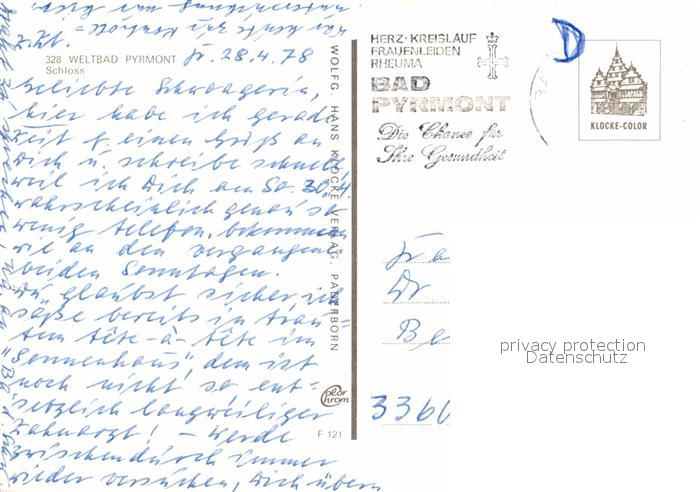 328 WELTBAD PYRMONT
Schloss
Fr. 28.4.78
Geliebte Schwägerin,
hier habe ich gerade
Zeit f. einen Gruß an
Dich u. schreibe schnell,
weil ich Dich am So. 30.4.
wahrscheinlich genau so
wenig telefon. bekomme
wie an den vergangenen
beiden Sonntagen.
Du glaubst sicher, ich
säße bereits in trau=
tem tête-à-tête im
"Sonnenhaus", dem ist
noch nicht so ent=
setzlich langweiliger
Zahnarzt! - Werde
zwischendurch immer
wieder versuchen, Dich
WOLFG. HANS KLOCKE VERLAG. PADERBORN
color
chrom
F 121
HERZ-KREISLAUF
FRAUENLEIDEN
RHEUMA
BAD
PYRMONT
Die Chance für
Ihre Gesundheit
D
KLOCKE-COLOR
Dr
Be
3360
privacy protection
Datenschutz